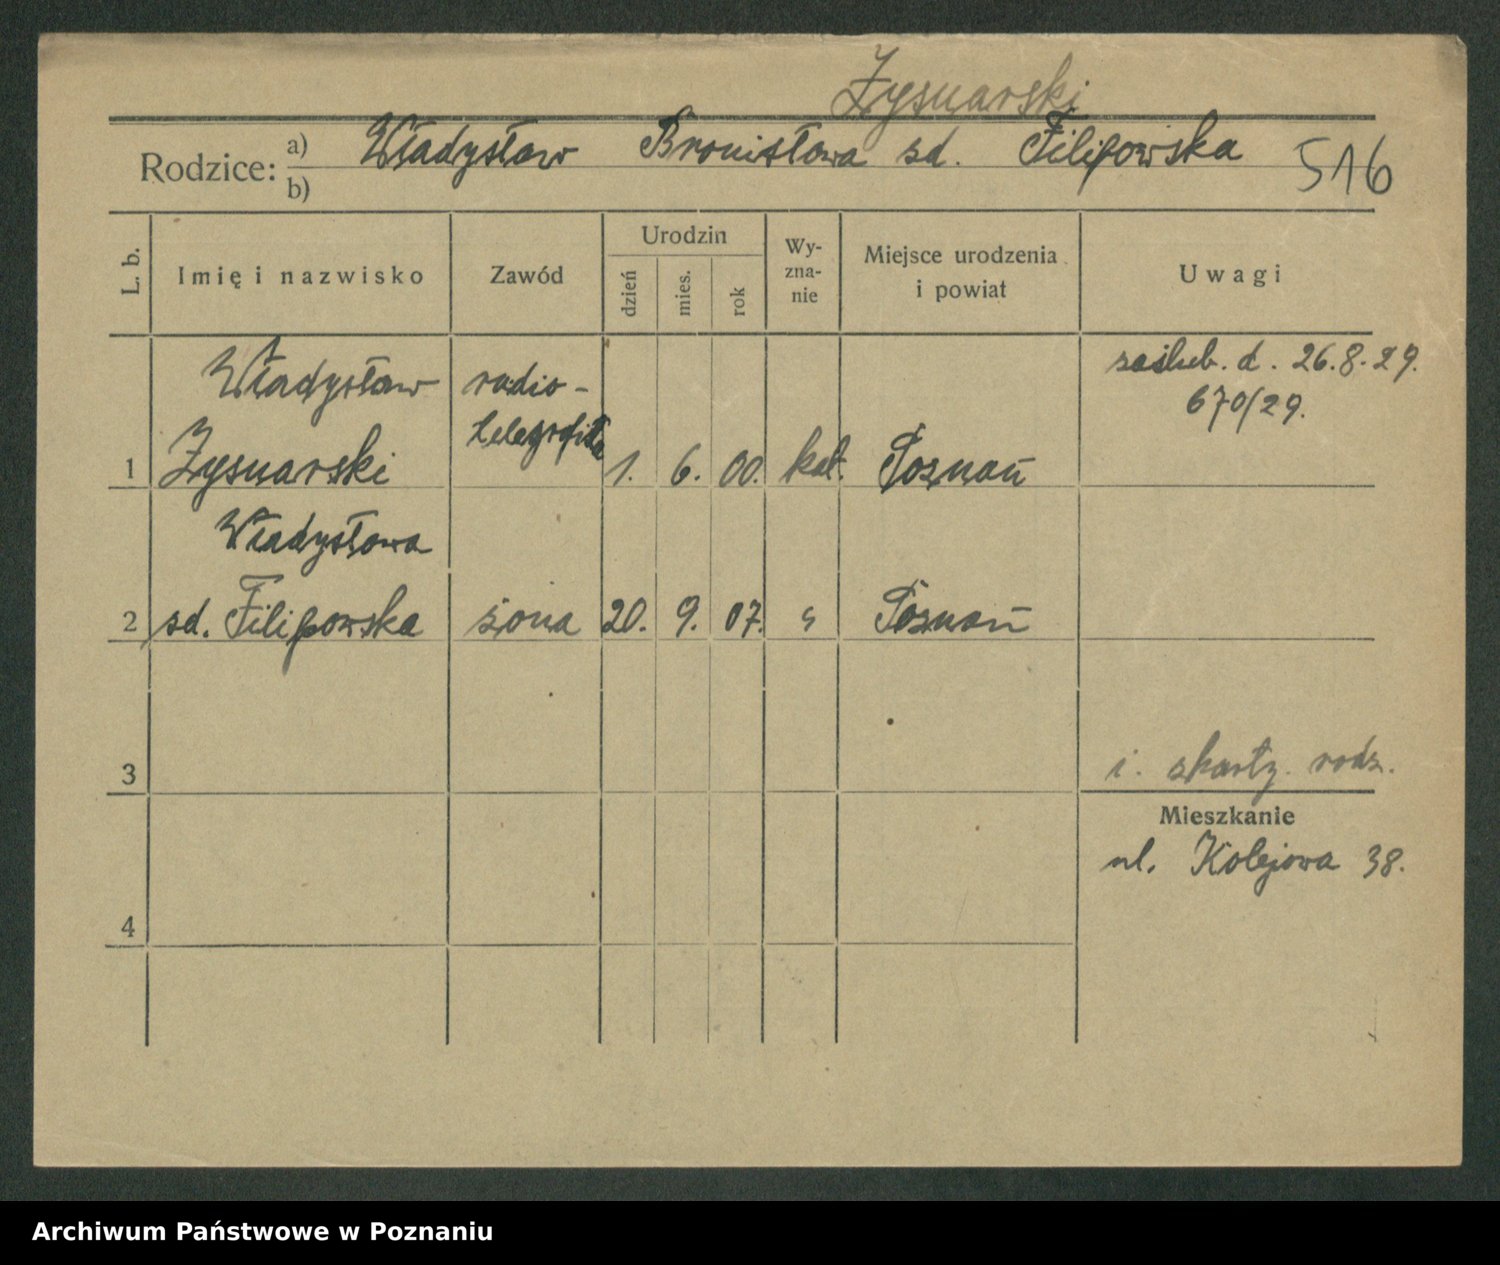 Żysnarski
Rodzice: a) Władysław Bronisława sd. Filipowska 516
b)
L. b.
Imię i nazwisko
Zawód
Urodzin
dzień
mies.
rok
Wy-
zna-
nie
Miejsce urodzenia
i powiat
Uwagi
Władysław radio- zaślub. d. 26.8.29.
telegrafista 670/29.
1 Żysnarski 1. 6. 00. kat. Poznań
Władysława
2 sd. Filipowska żona 20. 9. 07. " Poznań
3 i. skartz. rodz.
Mieszkanie
ul. Kolejowa 38.
4
Archiwum Państwowe w Poznaniu